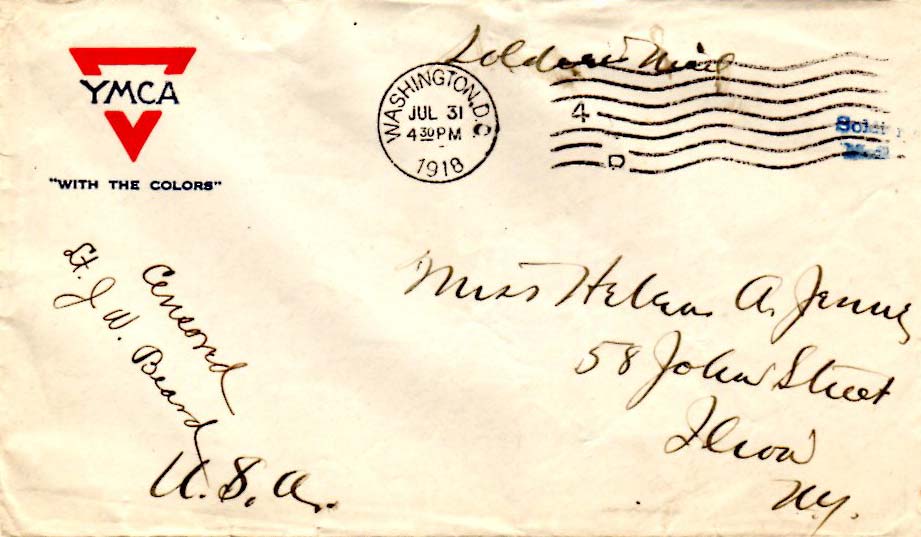 YMCA
"WITH THE COLORS"
Soldiers Mail
WASHINGTON, D.C.
JUL 31
4 30 PM
1918
4
D
Miss Helena A. Jenne
58 John Street
Ilion
N.Y.
Censored
Lt. J. W. Beard
U. S. A.